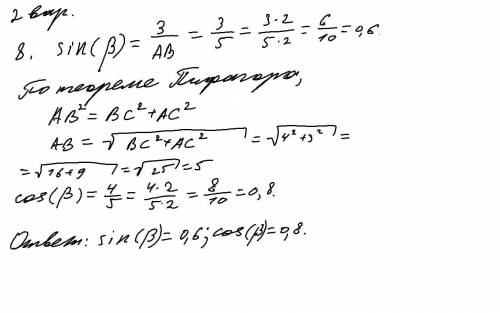 2 вар.
8. sin(β) = 3/AB = 3/5 = 3·2/5·2 = 6/10 = 0,6.
По теореме Пифагора,
AB² = BC² + AC²
AB = √BC² + AC² = √4² + 3² =
= √16+9 = √25 = 5
cos(β) = 4/5 = 4·2/5·2 = 8/10 = 0,8.
Ответ: sin(β) = 0,6; cos(β) = 0,8.